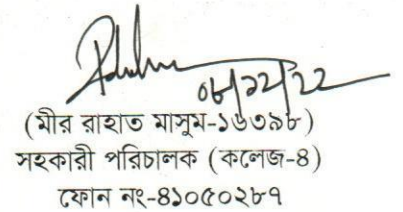 ০৮/১২/২২
(মীর রাহাত মাসুম-১৬৩৯৮)
সহকারী পরিচালক (কলেজ-৪)
ফোন নং-৪১০৫০২৮৭